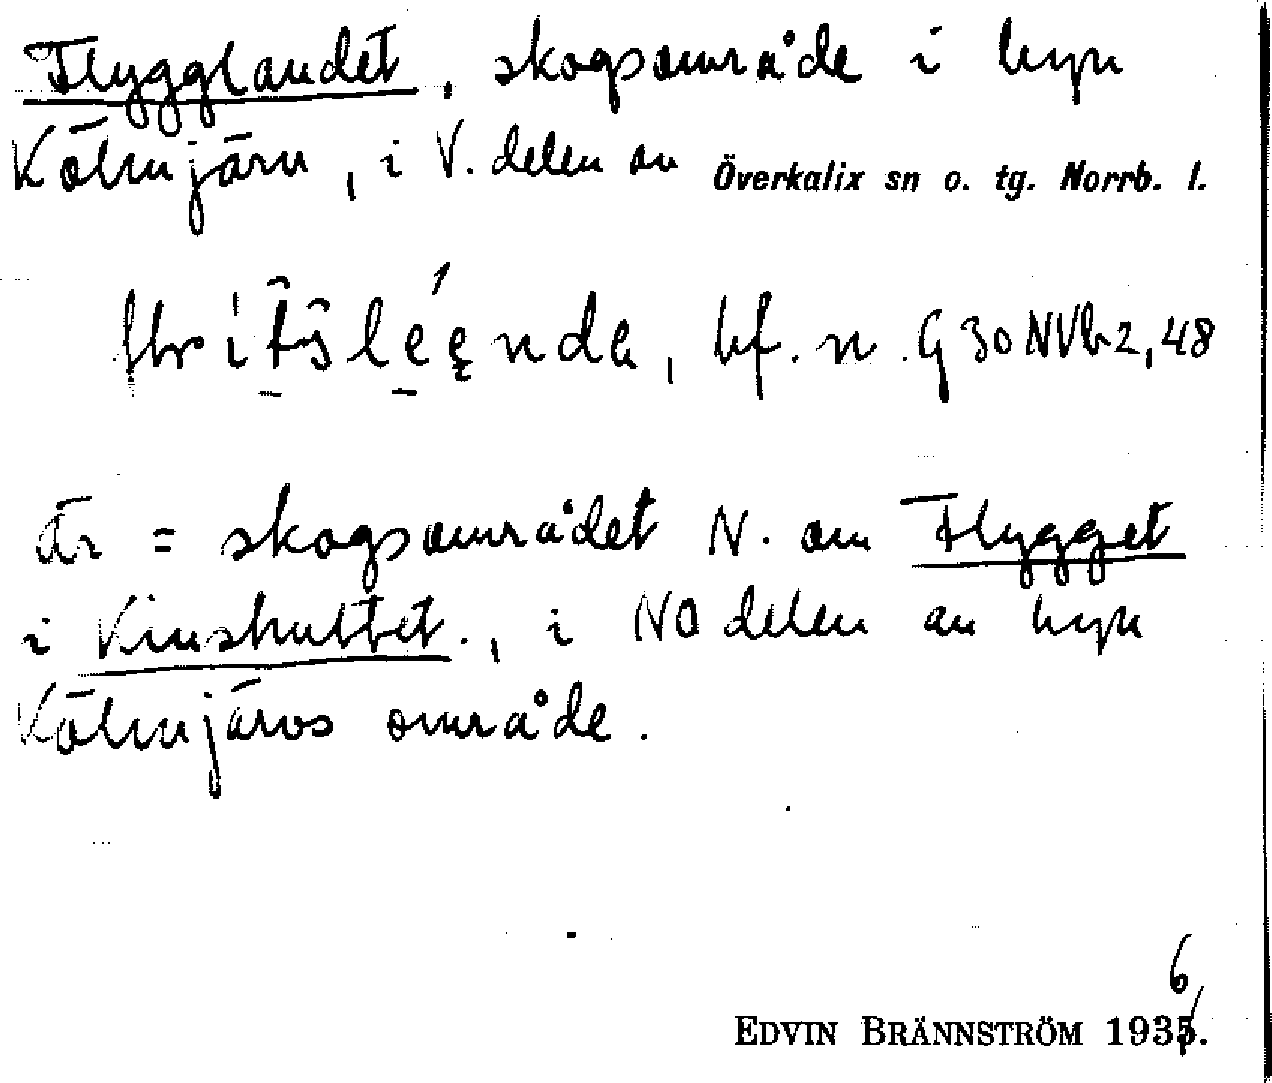 Flygglandet, skogsområde i byn
Kölmjärn, i V. delen av Överkalix sn o. tg. Norrb. l.
bf. n. G 30 NVb2, 48
Är = skogsområdet N. om Flygget
i Vinshuttet., i NO delen av byn
Kölmjärvs område.
6
EDVIN BRÄNNSTRÖM 1935.